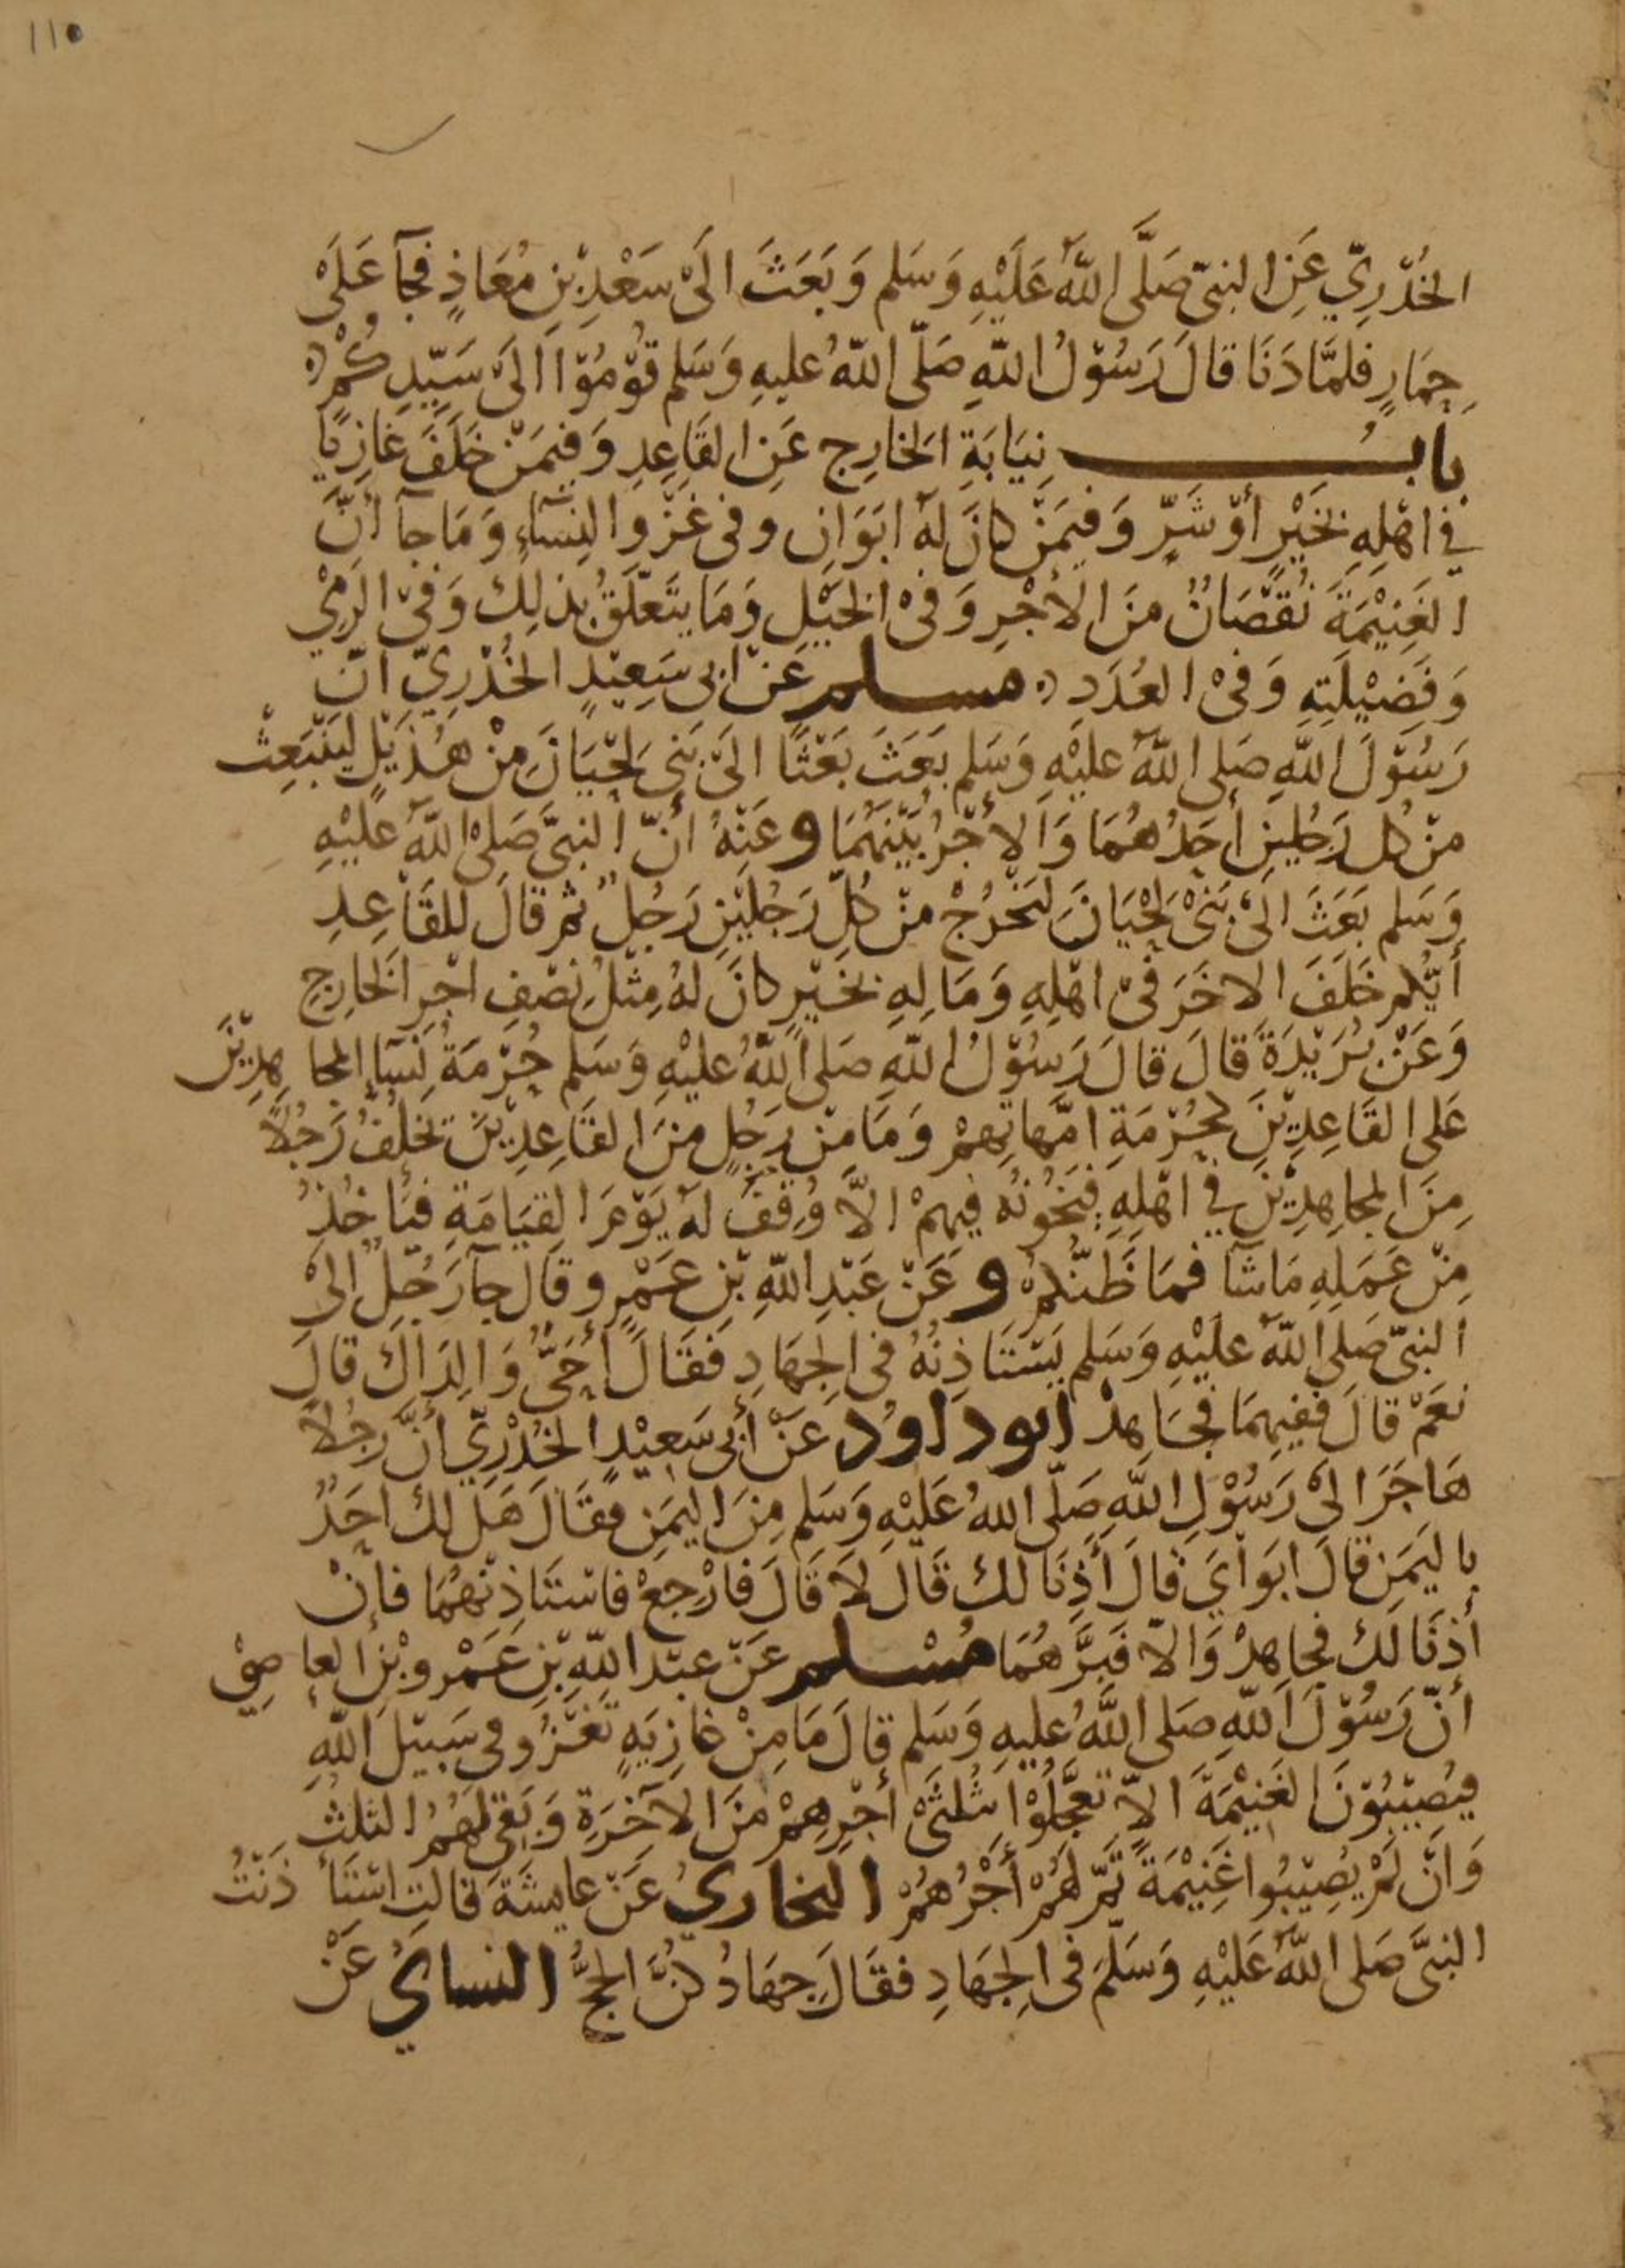 110
الخُدْرِيّ عَنِ النبيّ صَلَّى اللهُ عَلَيْهِ وَسَلم وَبَعَثَ الَىْ سَعْدِ بْنِ مُعَاذٍ فجآ عَلَىْ
حِمَارٍ فلمَّا دَنَا قالَ رَسُوْلُ اللهِ صَلّى اللهُ عليهِ وَسَلم قوْمُوْا الَىْ سَيّدِكُمْ
بابُ نِيَابَةِ الخارِج عَنِ القَاعِدِ وَفيمَنْ خَلَفَ غازِيًا
في اهْلِهِ بخَيْرٍ أوْ شَرٍّ وَفيَمنْ كانَ لهُ ابَوَانِ وفى غَزْوِ النِسَاءِ وَمَا جآ أنَّ
الغَنِيْمَةَ نُقْصَانٌ منَ الأجْرِ وَفىْ الخَيْلِ وَمَا يتَعلّقُ بذلِك وَفىْ الرَمْيِ
وَفَضِيْلَتِهِ وَفىْ العُدَدِ مسلم عَنْ ابى سَعِيْدٍ الخُدْرِيّ انّ
رَسُوْلَ اللهِ صَلى اللهُ عليْهِ وَسَلم بَعَثَ بَعْثًا الَىْ بَنِى لحْيَانَ مِنْ هُذَيْلٍ ليَنْبَعِثْ
منْ كل رَجُلينِ أحَدُهُمَا وَالأجْرُ بَيْنَهُمَا وعَنْهُ انّ النبيَّ صَلىْ اللهُ عليْهِ
وَسَلم بَعَثَ الَىْ بَنىْ لحْيَانَ لِيَخْرُجْ منْ كُلِّ رَجُليْنِ رَجُلٌ ثمر قالَ للقَاعِدِ
أيّكم خَلَفَ الاخَرَ فىْ اهْلِهِ وَمَالِهِ بخَيْرٍ كانَ لهُ مِثْلُ نِصْفِ اجْرِ الخارِجِ
وَعَنْ بُرَيْدَةَ قالَ قالَ رَسُوْلُ اللهِ صَلى اللهُ عليْهِ وَسَلم حُرْمَةُ نِسَآ المجاهِدِيْنَ
عَلى القَاعِدِيْنَ كحُرْمَةِ امّهاتِهِمْ وَمَا مِنْ رَجُلٍ منَ القَاعِدِيْنَ تخلُفُ رَجُلًا
مِنَ المجاهِدِيْنَ في اهْلِهِ فيَخُونُه فيهمْ الاَّ وُقِفَ لهُ يَوْمَ القِيَامَةِ فيَاخُذُ
مِنْ عَمَلِهِ مَا شَآ فمَا ظَنّكمْ وعَنْ عَبْدِ اللهِ بْنِ عَمْرٍو قالَ جآ رَجُلٌ الىْ
النبيّ صَلى اللهُ عليْهِ وَسَلم يَسْتَاذِنُهُ فى الجِهَادِ فَقَالَ أحَىٌّ وَالِدَاكَ قالَ
نعَمْ قالَ ففيهِمَا فجَاهِدْ ابوداود عَنْ أبى سَعِيْدٍ الخُدْرِيّ أنَّ رَجُلاً
هَاجَرَ الىْ رَسُوْلِ اللهِ صَلّى اللهُ عَليْهِ وَسَلم مِنَ اليَمَنِ فقَالَ هَلْ لكَ احَدٌ
باليَمَنِ قالَ ابَوَايَ قالَ أَذِنَا لكَ قَالَ لاَ قَالَ فارْجِعْ فاسْتَاذِنْهُمَا فانْ
أذِنَا لَكَ فجاهِدْ وَالاّ فَبرَّهُمَا مُسْلم عَنْ عبْد اللهِ بْنِ عَمْرِو بْنِ العاصِىْ
أنّ رَسُوْلَ اللهِ صَلى اللهُ عليهِ وَسَلم قالَ مَا مِنْ غازِيَةٍ تَغْزُو فى سَبيْلِ اللهِ
فيُصِيْبُوْنَ الغَنِيْمَةَ الاّ تعَجَّلُوْا ثُلثَىْ أجْرِهِمْ منَ الآخرَةِ وَيَبْقى لهُمُ الثلثُ
وَانّ لَمْ يُصِيْبُوا غَنِيْمَةً تمَّ لهُمْ أجْرُهُمْ البخاريُ عَنْ عايشَةَ قالتِ اسْتَأذَنْتُ
النبيَّ صَلى اللهُ عَليْهِ وَسَلَّمَ فى الجِهَادِ فقَالَ جِهَادُكنَّ الحجُّ النسايُ عَنْ